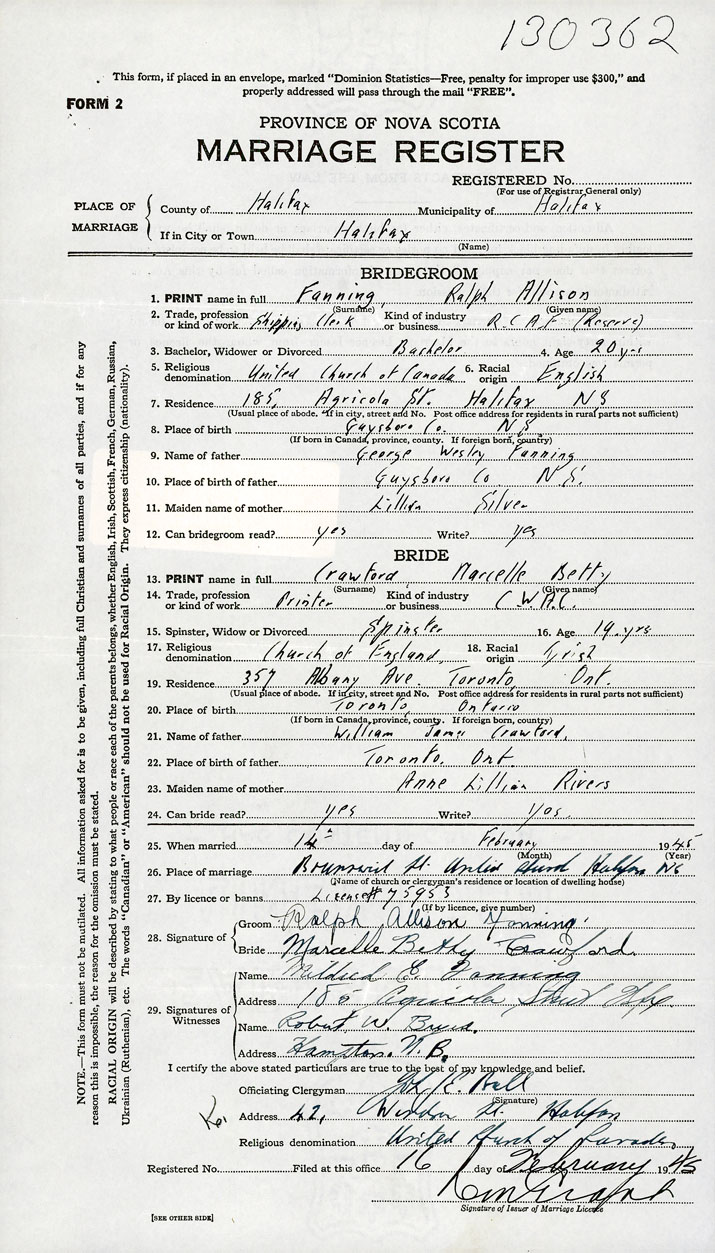 130362
This form, if placed in an envelope, marked "Dominion Statistics—Free, penalty for improper use $300," and
properly addressed will pass through the mail "FREE".
FORM 2
PROVINCE OF NOVA SCOTIA
MARRIAGE REGISTER
REGISTERED No.
(For use of Registrar General only)
PLACE OF MARRIAGE
County of Halifax Municipality of Halifax
If in City or Town Halifax
(Name)
BRIDEGROOM
1. PRINT name in full Fanning, Ralph Allison
(Surname) (Given name)
2. Trade, profession or kind of work Shipping Clerk Kind of industry or business R.C.A.F. (Reserve)
3. Bachelor, Widower or Divorced Bachelor 4. Age 20 yrs
5. Religious denomination United Church of Canada 6. Racial origin English
7. Residence 185, Agricola St. Halifax N S
(Usual place of abode. If in city, street and No. Post office address for residents in rural parts not sufficient)
8. Place of birth Guysboro Co. N S.
(If born in Canada, province, county. If foreign born, country)
9. Name of father George Wesley Fanning
10. Place of birth of father Guysboro Co N S.
11. Maiden name of mother Lillian Silver
12. Can bridegroom read? yes Write? yes
BRIDE
13. PRINT name in full Crawford Marcelle Betty
(Surname) (Given name)
14. Trade, profession or kind of work Printer Kind of industry or business C.W.A.C.
15. Spinster, Widow or Divorced Spinster 16. Age 19 yrs
17. Religious denomination Church of England, 18. Racial origin Irish
19. Residence 357 Albany Ave. Toronto, Ont.
(Usual place of abode. If in city, street and No. Post office address for residents in rural parts not sufficient)
20. Place of birth Toronto, Ontario
(If born in Canada, province, county. If foreign born, country)
21. Name of father William James Crawford.
22. Place of birth of father Toronto. Ont.
23. Maiden name of mother Anne Lillian Rivers
24. Can bride read? yes Write? yes.
25. When married 14th day of February 1945
(Month) (Year)
26. Place of marriage Brunswick St. United Church Halifax NS
(Name of church or clergyman's residence or location of dwelling house)
27. By licence or banns License # 75953
(If by licence, give number)
28. Signature of
Groom Ralph Allison Fanning.
Bride Marcelle Betty Crawford.
29. Signatures of Witnesses
Name Mildred E. Fanning
Address 185 Agricola Street Hfx.
Name Robert W.
Address Hampton. N.B.
I certify the above stated particulars are true to the best of my knowledge and belief.
Officiating Clergyman
(Signature)
Address 42, Windsor St. Halifax
Religious denomination United Church of Canada
Registered No. Filed at this office 16 day of February 1945
Signature of Issuer of Marriage Licence
[SEE OTHER SIDE]
NOTE.—This form must not be mutilated. All information asked for is to be given, including full Christian and surnames of all parties, and if for any
reason this is impossible, the reason for the omission must be stated.
RACIAL ORIGIN will be described by stating to what people or race each of the parents belongs, whether English, Irish, Scottish, French, German, Russian,
Ukrainian (Ruthenian), etc. The words "Canadian" or "American" should not be used for Racial Origin. They express citizenship (nationality).